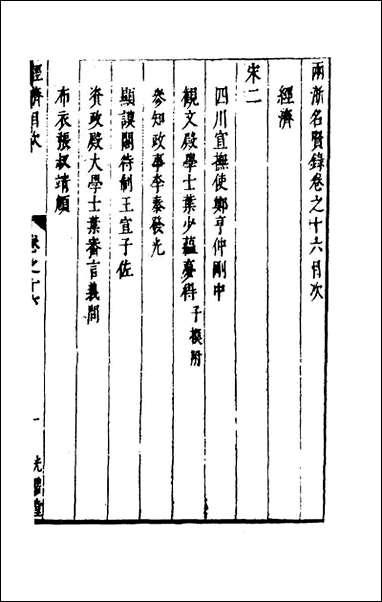 兩浙名賢錄卷之十六目次
經濟
宋二
四川宣撫使鄭亨仲剛中
觀文殿學士葉少蘊夢得 子模附
參知政事李泰發光
顯謨閣待制王宣子佐
資政殿大學士葉審言義問
布衣張叔靖頠
經濟目次 卷之十六 一 光碧堂